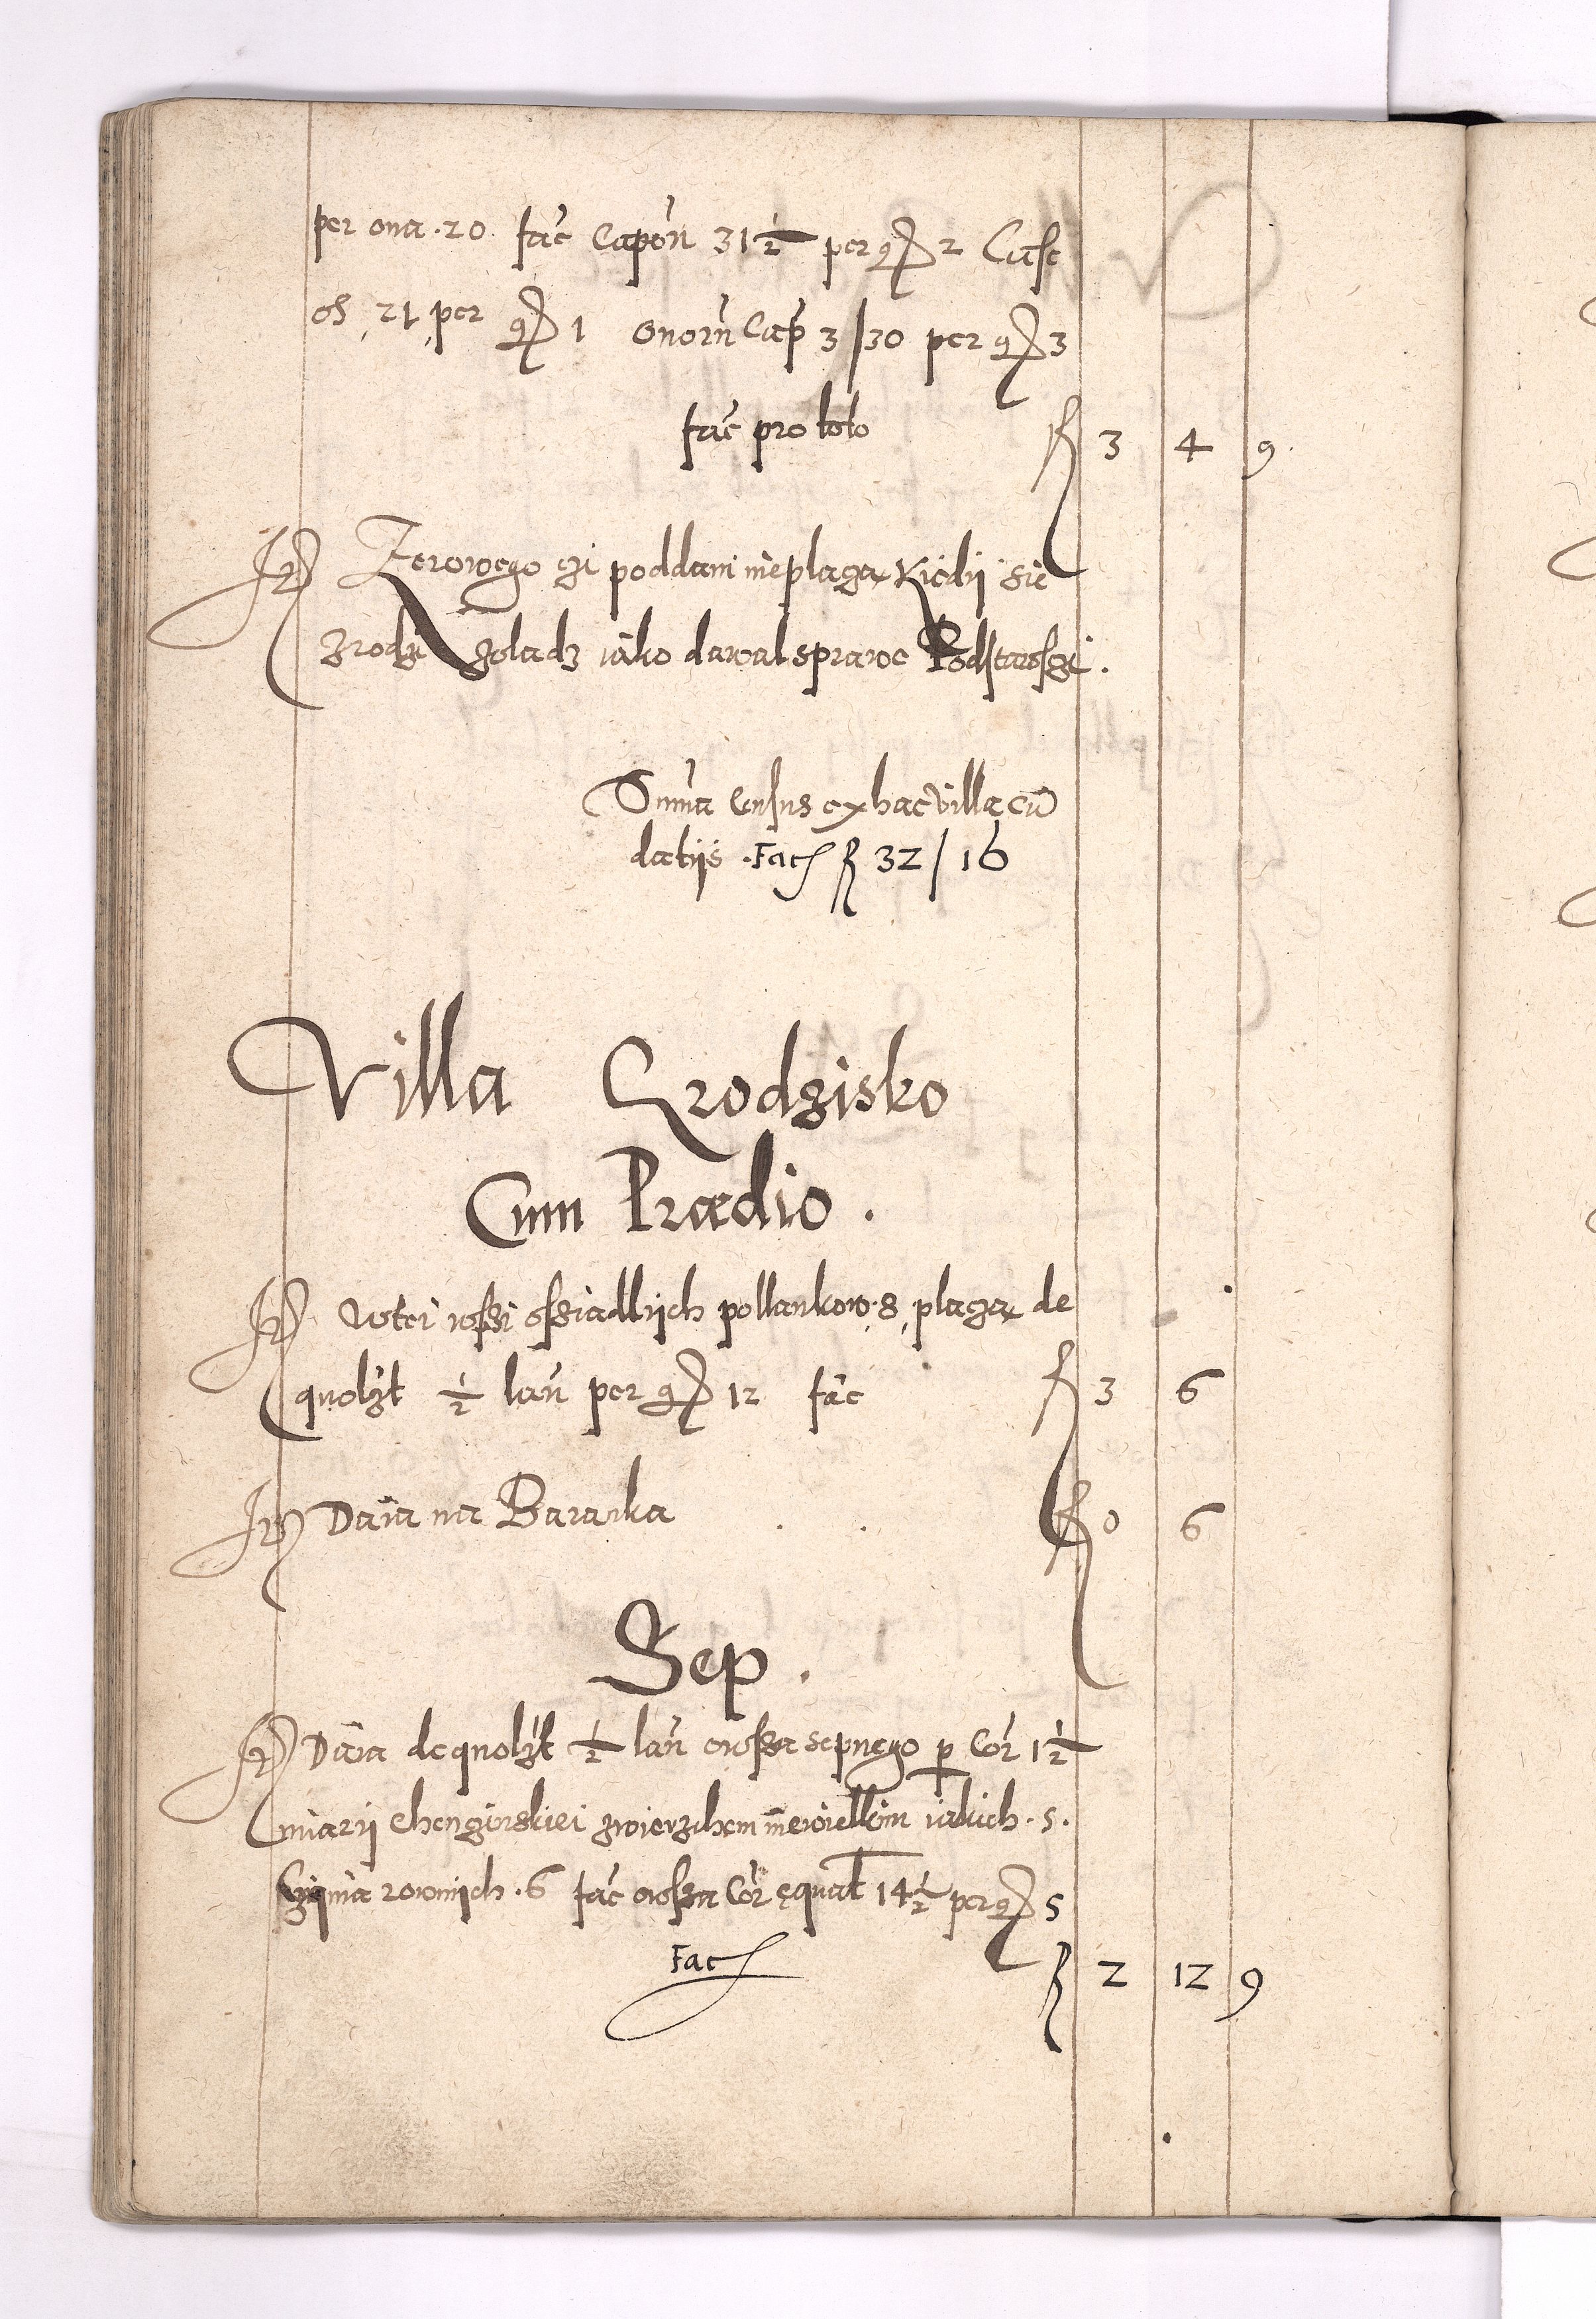 per ona . 20 fac̃ Capon̄ 31 ½ per gr 2 Case
os , 21 , per gr 1 Onorn̄ Cap̄ 3 / 30 per gr 3
fac̃ pro toto fl 3 4 9
It Zerowego czi poddani nieplaczą Kiedy sie
zrodzi zoladz iáko dawal sprawe Podstarosczi .
Sum̄a Census ex hac villa cū
datijs . Fac fl 32 / 16
Villa Grodzisko
Cum Prædio .
It Wtei wssi ossiadlych pollankow . 8 , placzą de
quolzt ½ lan̄ per gr 12 fac̃ fl 3 6
It Daia na Baranka fl 0 6
Sep .
It Dáia de quolzt ½ lan̄ owssa sepnego p Cor̄ 1 ½
miary Chenzinskiei zwierzchem niewiellkim iakich . 5 .
czijnia rownijch . 6 fac̃ owssa Cor̄ equat 14 ½ per gr 5
Fac fl 2 12 9